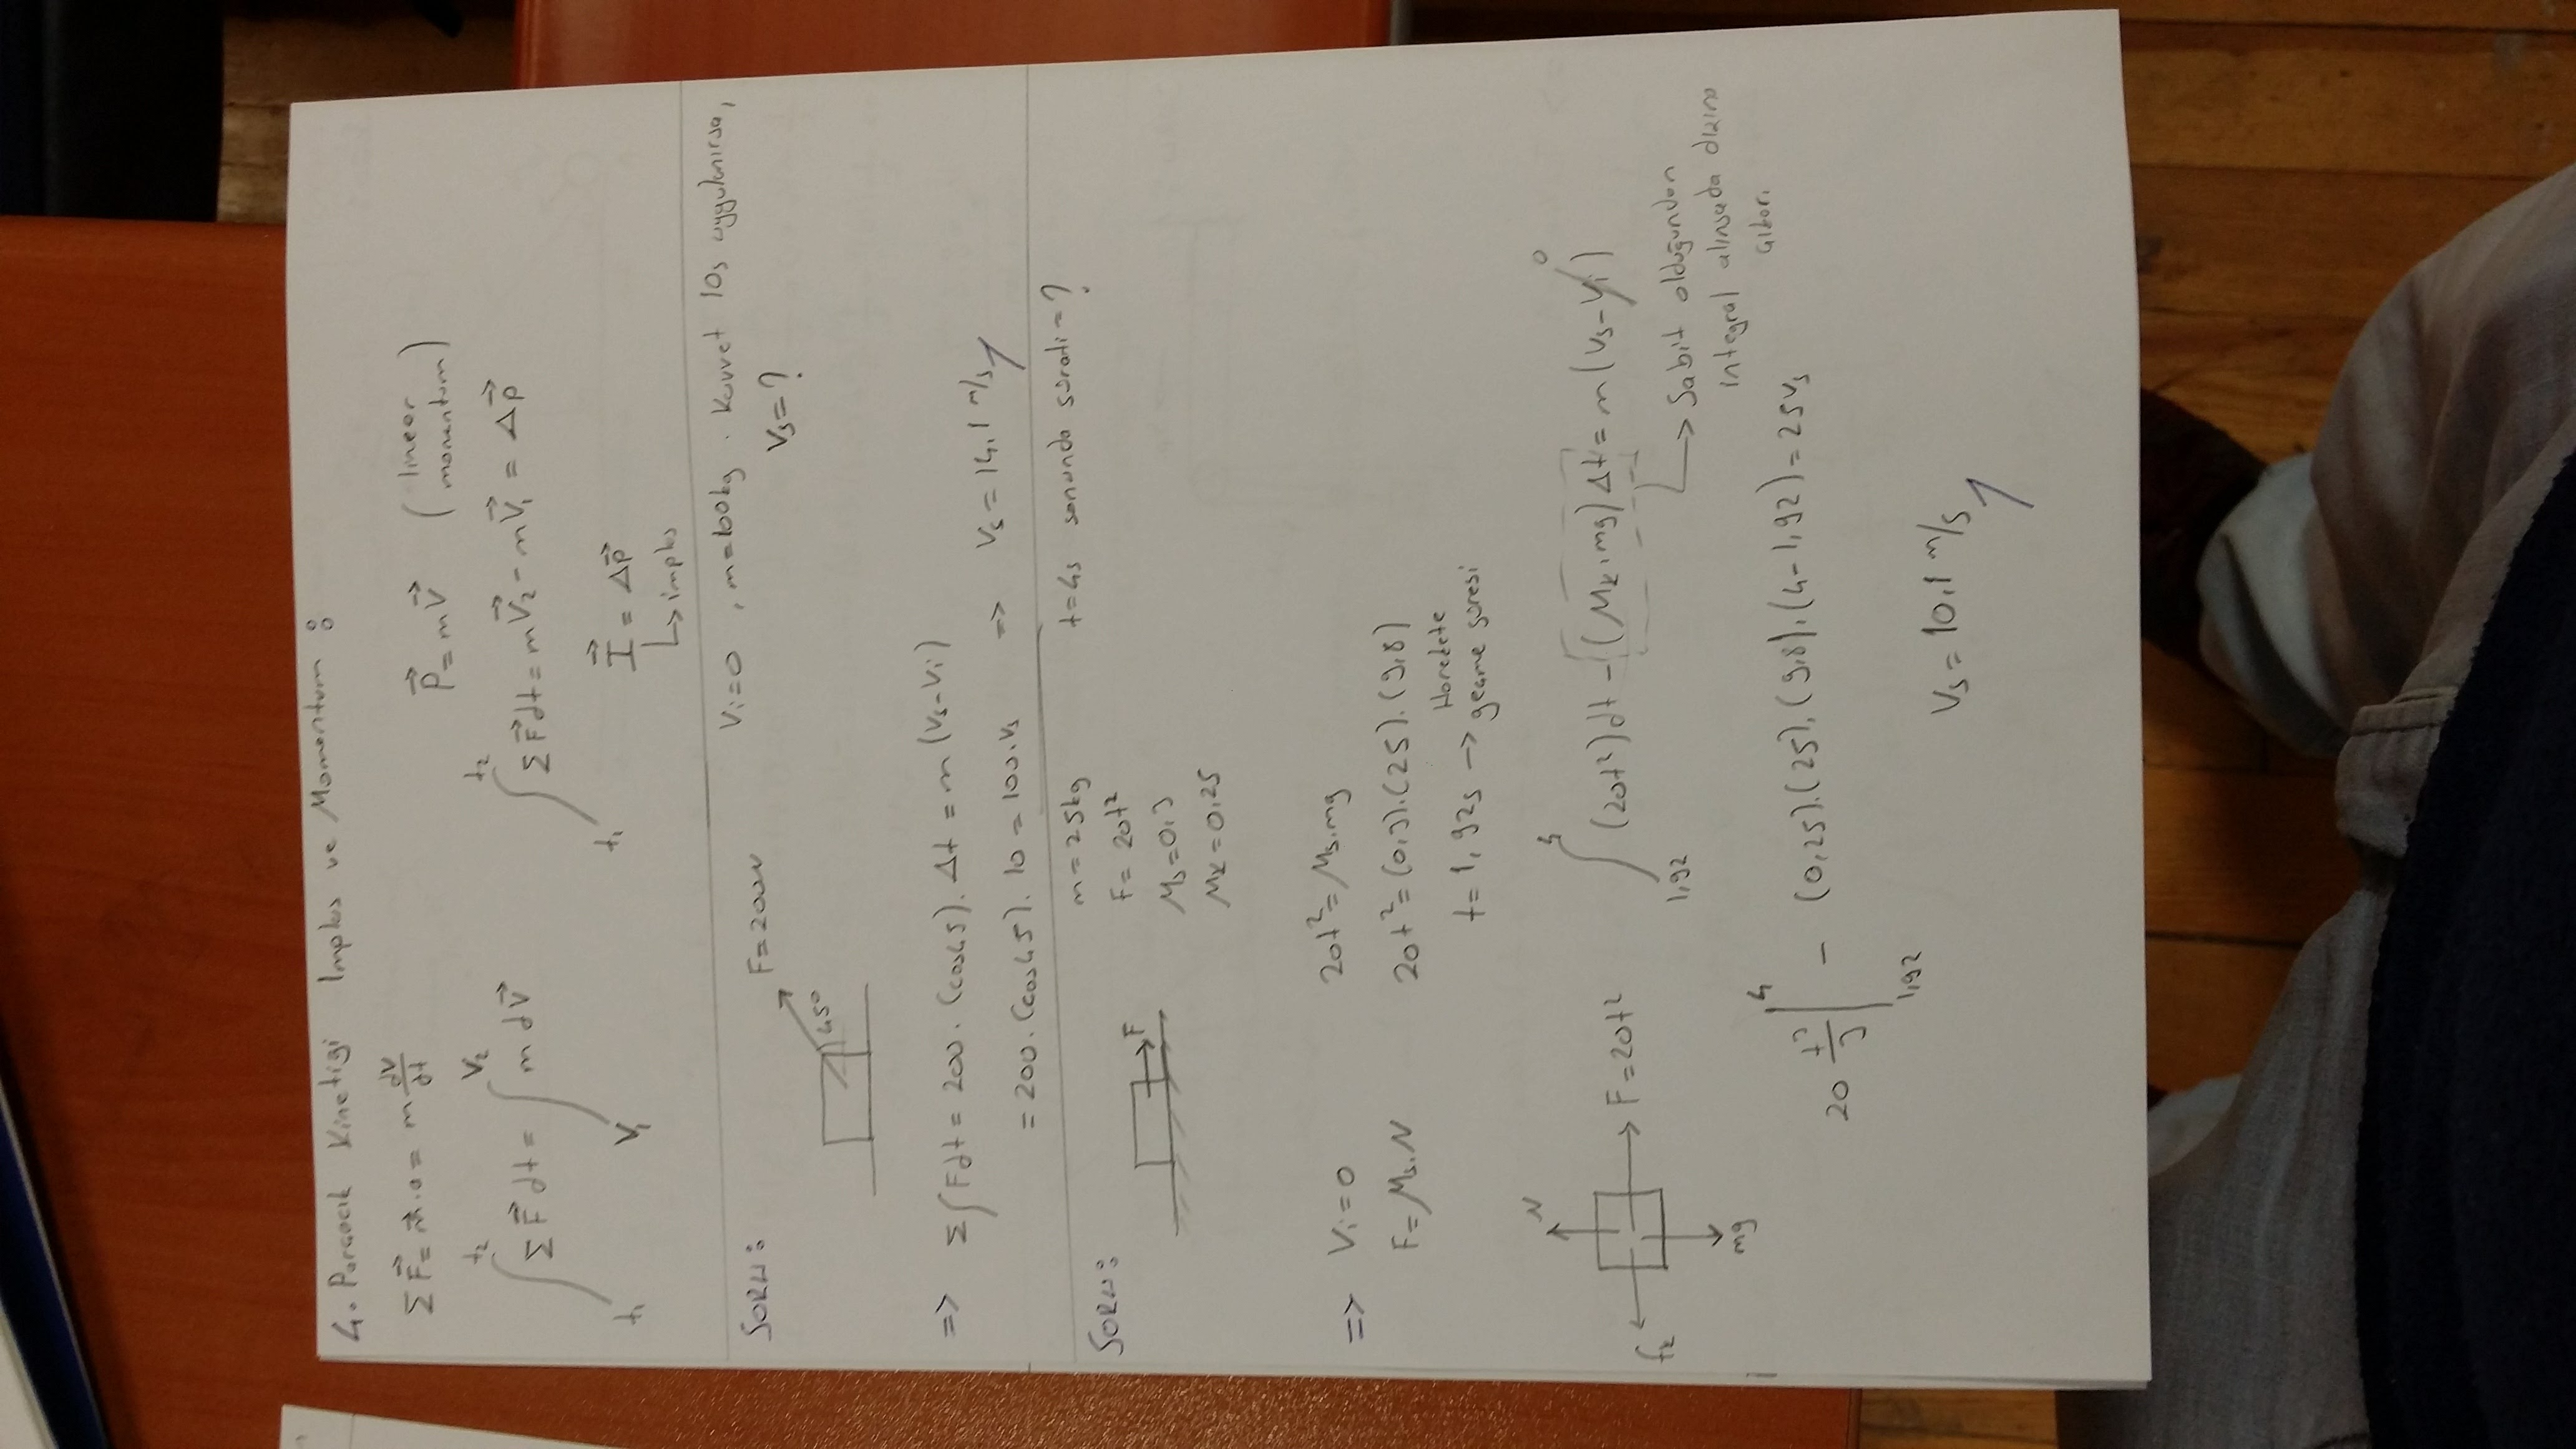 4. Parçacık Kinetiği Impls ve Momentum :
ΣF⃗ = m⃗.a = m dV/dt
P⃗ = mV⃗ (lineer momentum)
∫_{t₁}^{t₂} ΣF⃗ dt = ∫_{V₁}^{V₂} m dV⃗
∫_{t₁}^{t₂} ΣF⃗dt = mV⃗₂ - mV⃗₁ = Δp⃗
I⃗ = Δp⃗
↳ impls
SORU: Vi=0 , m=100kg . Kuvvet 10s uygulanırsa,
F=200N
Vs=?
45°
=> Σ∫Fdt = 200. (cos45). Δt = m(Vs-Vi)
= 200. (cos45). 10 = 100.Vs => Vs = 14,1 m/s
SORU: m=25kg t=4s sonunda sürati=?
F
F= 20t²
Ms=0,3
Mk=0,25
=> Vi=0 20t²= Ms.mg
F= Ms.N 20t²= (0,3).(25).(9,8)
t= 1,92s -> Harekete geçme süresi
N
fk
F=20t²
mg
∫_{1,92}^{4} (20t²)dt - (Mk.mg)Δt = m(Vs-Vi) 0
-> Sabit olduğundan
integral alınsada dışına
çıkar.
20 t³/3 |_{1,92}^{4} - (0,25).(25).(9,8).(4-1,92) = 25Vs
Vs = 10,1 m/s